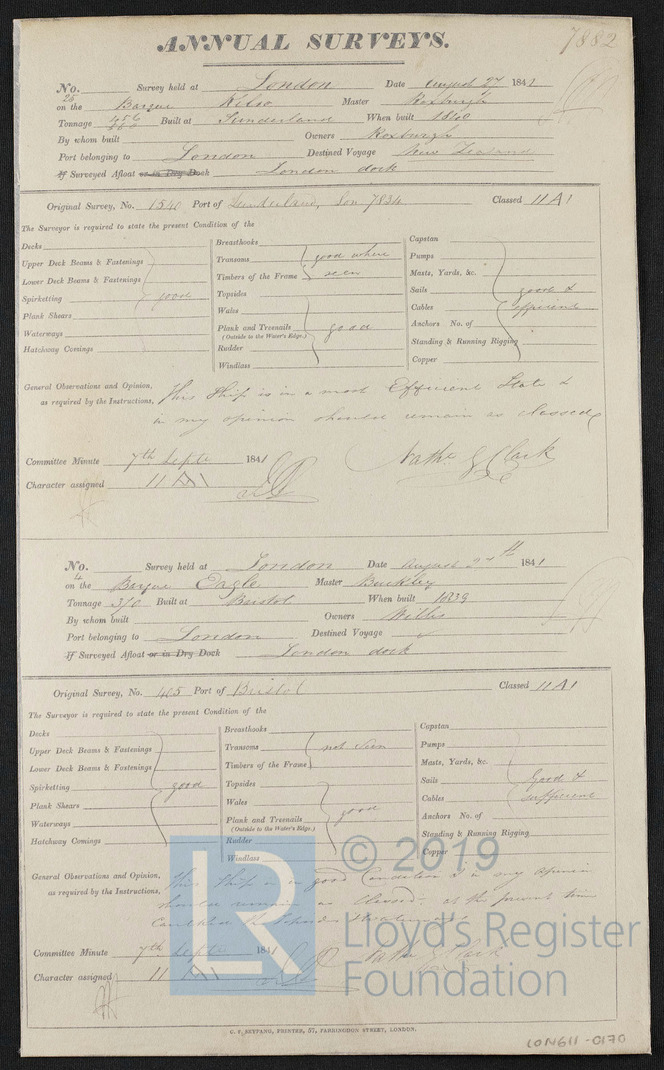 7882
ANNUAL SURVEYS.
No. Survey held at London Date August 27 1841
25
on the Barque Kelso Master Roxburgh
Tonnage 456 Built at Sunderland When built 1840
By whom built Owners Roxburgh
Port belonging to London Destined Voyage New Zealand
If Surveyed Afloat or in Dry Dock London dock
Original Survey, No. 1540 Port of Sunderland, Lon 7834 Classed 11 A 1
The Surveyor is required to state the present Condition of the
Decks
Upper Deck Beams & Fastenings
Lower Deck Beams & Fastenings
Spirketting good
Plank Shears
Waterways
Hatchway Comings
Breasthooks
Transoms good where
Timbers of the Frame seen
Topsides
Wales
Plank and Treenails good
(Outside to the Water's Edge.)
Rudder
Windlass
Capstan
Pumps
Masts, Yards, &c.
Sails good &
Cables efficient
Anchors No. of
Standing & Running Rigging
Copper
General Observations and Opinion, This Ship is in a most Efficient State &
as required by the Instructions, in my opinion should remain as Classed
Committee Minute 7th Septr 1841 Nathl G Clark
Character assigned 11 A1
No. Survey held at London Date August 27th 1841
4
on the Barque Eagle Master Buckley
Tonnage 310 Built at Bristol When built 1839
By whom built Owners Willis
Port belonging to London Destined Voyage
If Surveyed Afloat or in Dry Dock London dock
Original Survey, No. 465 Port of Bristol Classed 11 A 1
The Surveyor is required to state the present Condition of the
Decks
Upper Deck Beams & Fastenings
Lower Deck Beams & Fastenings
Spirketting good
Plank Shears
Waterways
Hatchway Comings
Breasthooks
Transoms not seen
Timbers of the Frame
Topsides
Wales
Plank and Treenails good
(Outside to the Water's Edge.)
Rudder
Windlass
Capstan
Pumps
Masts, Yards, &c.
Sails Good &
Cables sufficient
Anchors No. of
Standing & Running Rigging
Copper
General Observations and Opinion, This Ship is in good Condition & in my opinion
as required by the Instructions, should remain as Classed, at the present time
Caulked the Topsides
Committee Minute 7th Septr 1841 Nathl G Clark
Character assigned 11 A1
© 2019
LR
Lloyd's Register
Foundation
G. F. SEYFANG, PRINTER, 57, FARRINGDON STREET, LONDON.
LON611-0170